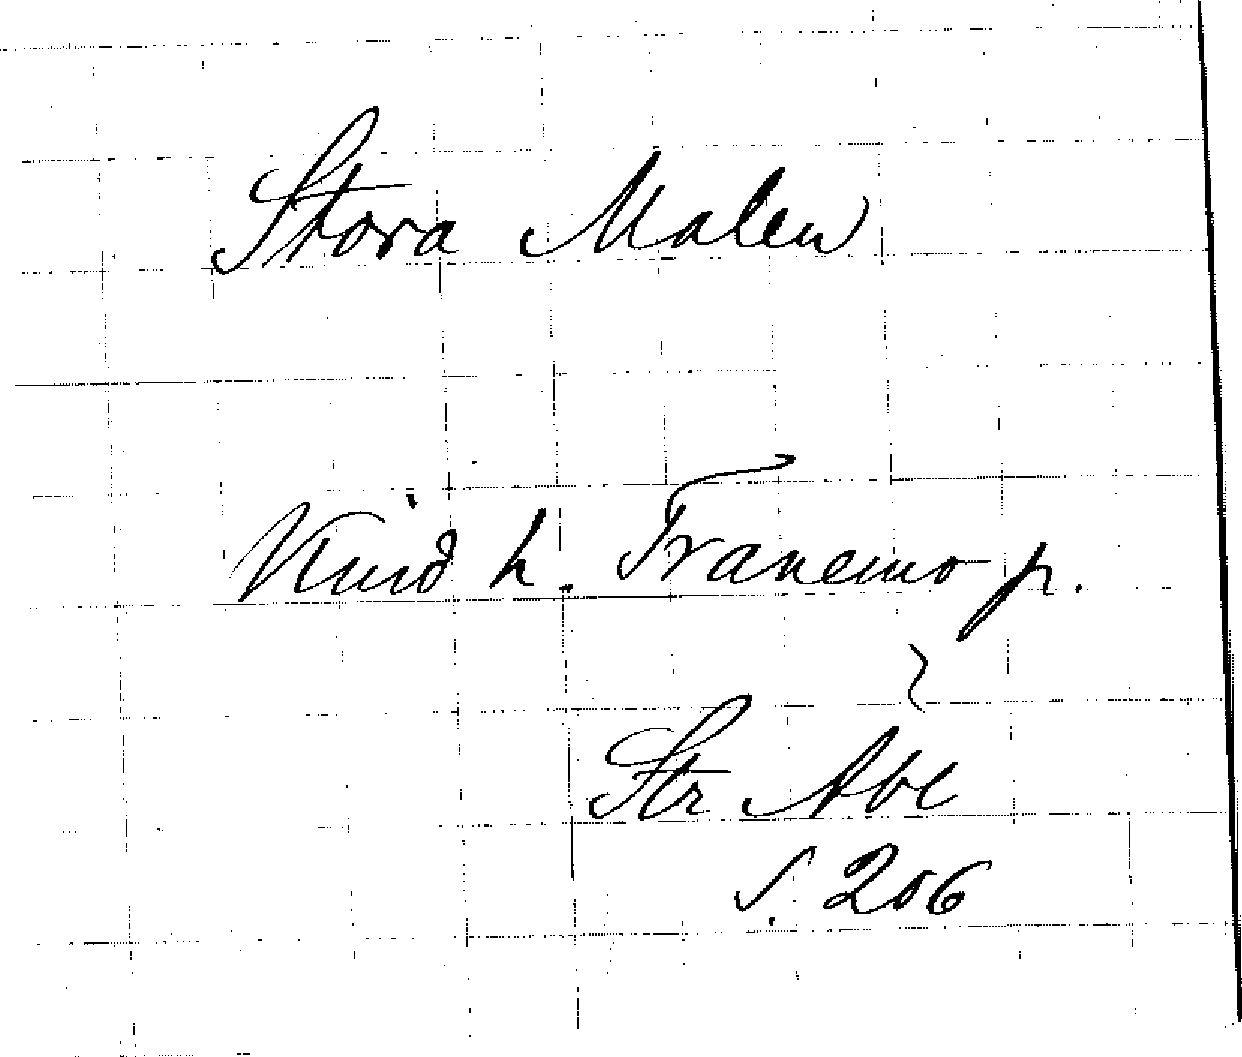 Stora Malen
Kind h. Tranemo p.
Str Abl
s. 206